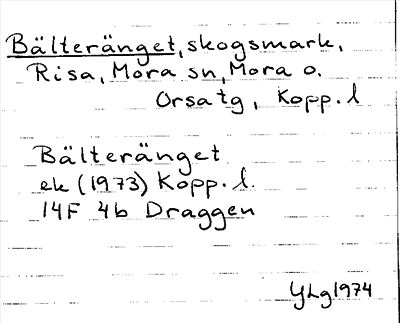 Bälteränget, skogsmark,
Risa, Mora sn, Mora o.
Orsa tg, Kopp. l
Bälteränget
ek (1973) Kopp. l.
14F 4b Draggen
YLg 1974